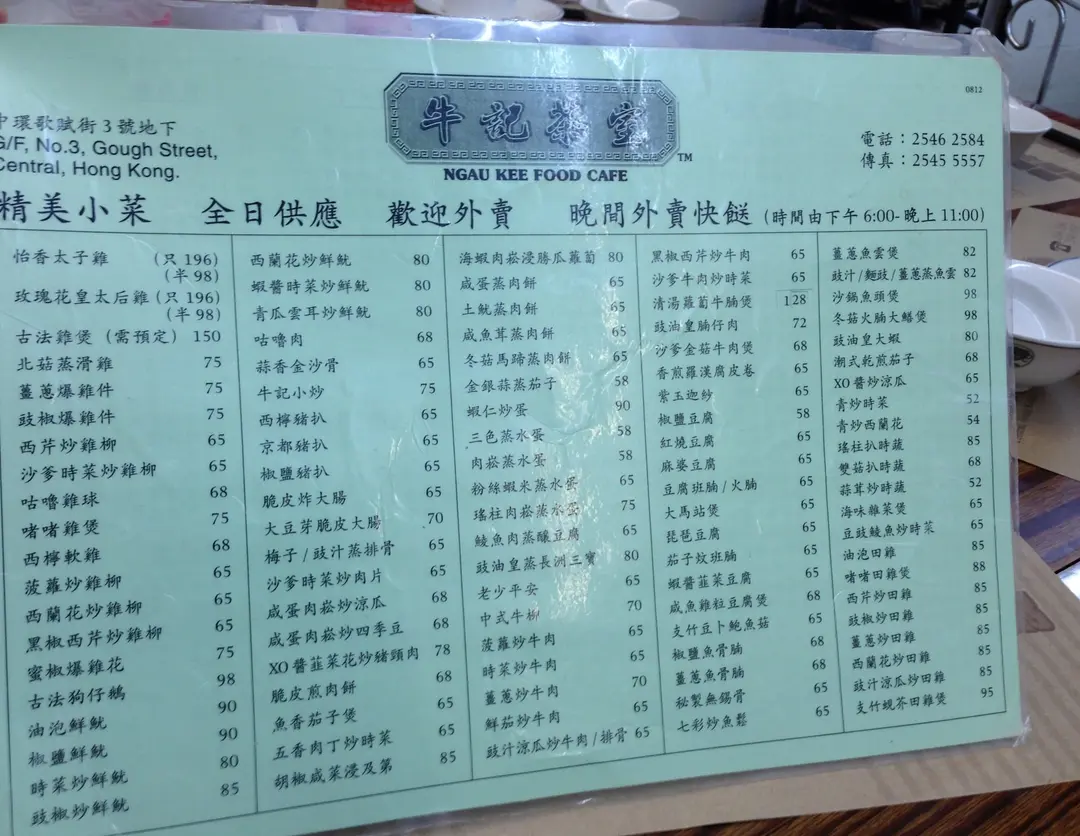 0812
牛記茶室
TM
NGAU KEE FOOD CAFE
中環歌賦街3號地下
G/F, No.3, Gough Street,
Central, Hong Kong.
電話：2546 2584
傳真：2545 5557
精美小菜 全日供應 歡迎外賣 晚間外賣快餸 (時間由下午 6:00-晚上 11:00)
怡香太子雞 (只 196)
(半 98)
玫瑰花皇太后雞 (只 196)
(半 98)
古法雞煲 (需預定) 150
北菇蒸滑雞 75
薑蔥爆雞件 75
豉椒爆雞件 75
西芹炒雞柳 65
沙爹時菜炒雞柳 65
咕嚕雞球 68
啫啫雞煲 75
西檸軟雞 68
菠蘿炒雞柳 65
西蘭花炒雞柳 65
黑椒西芹炒雞柳 65
蜜椒爆雞花 75
古法狗仔鵝 98
油泡鮮魷 90
椒鹽鮮魷 90
時菜炒鮮魷 80
豉椒炒鮮魷 85
西蘭花炒鮮魷 80
蝦醬時菜炒鮮魷 80
青瓜雲耳炒鮮魷 80
咕嚕肉 68
蒜香金沙骨 65
牛記小炒 75
西檸豬扒 65
京都豬扒 65
椒鹽豬扒 65
脆皮炸大腸 65
大豆芽脆皮大腸 70
梅子/豉汁蒸排骨 65
沙爹時菜炒肉片 65
咸蛋肉崧炒涼瓜 68
咸蛋肉崧炒四季豆 68
XO醬韮菜花炒豬頸肉 78
脆皮煎肉餅 68
魚香茄子煲 65
五香肉丁炒時菜 65
胡椒咸菜浸及第 85
海蝦肉崧浸勝瓜蘿蔔 80
咸蛋蒸肉餅 65
土魷蒸肉餅 65
咸魚茸蒸肉餅 65
冬菇馬蹄蒸肉餅 65
金銀蒜蒸茄子 58
蝦仁炒蛋 90
三色蒸水蛋 58
肉崧蒸水蛋 58
粉絲蝦米蒸水蛋 65
瑤柱肉崧蒸水蛋 75
鯪魚肉蒸釀豆腐 65
豉油皇蒸長洲三寶 80
老少平安 65
中式牛柳 70
菠蘿炒牛肉 65
時菜炒牛肉 65
薑蔥炒牛肉 70
鮮茄炒牛肉 65
豉汁涼瓜炒牛肉/排骨 65
黑椒西芹炒牛肉 65
沙爹牛肉炒時菜 65
清湯蘿蔔牛腩煲 128
豉油皇腩仔肉 72
沙爹金菇牛肉煲 68
香煎羅漢腐皮卷 65
紫玉迦紗 65
椒鹽豆腐 58
紅燒豆腐 65
麻婆豆腐 65
豆腐班腩/火腩 65
大馬站煲 65
琵琶豆腐 65
茄子炆班腩 65
蝦醬韮菜豆腐 65
咸魚雞粒豆腐煲 68
支竹豆卜鮑魚菇 65
椒鹽魚骨腩 68
薑蔥魚骨腩 68
秘製無錫骨 65
七彩炒魚鬆 65
薑蔥魚雲煲 82
豉汁/麵豉/薑蔥蒸魚雲 82
沙鍋魚頭煲 98
冬菇火腩大鱔煲 98
豉油皇大蝦 80
潮式乾煎茄子 68
XO醬炒涼瓜 65
青炒時菜 52
青炒西蘭花 54
瑤柱扒時蔬 85
雙菇扒時蔬 68
蒜茸炒時蔬 52
海味雜菜煲 65
豆豉鯪魚炒時菜 65
油泡田雞 65
啫啫田雞煲 88
西芹炒田雞 85
豉椒炒田雞 85
薑蔥炒田雞 85
西蘭花炒田雞 85
豉汁涼瓜炒田雞 85
支竹蜆芥田雞煲 95